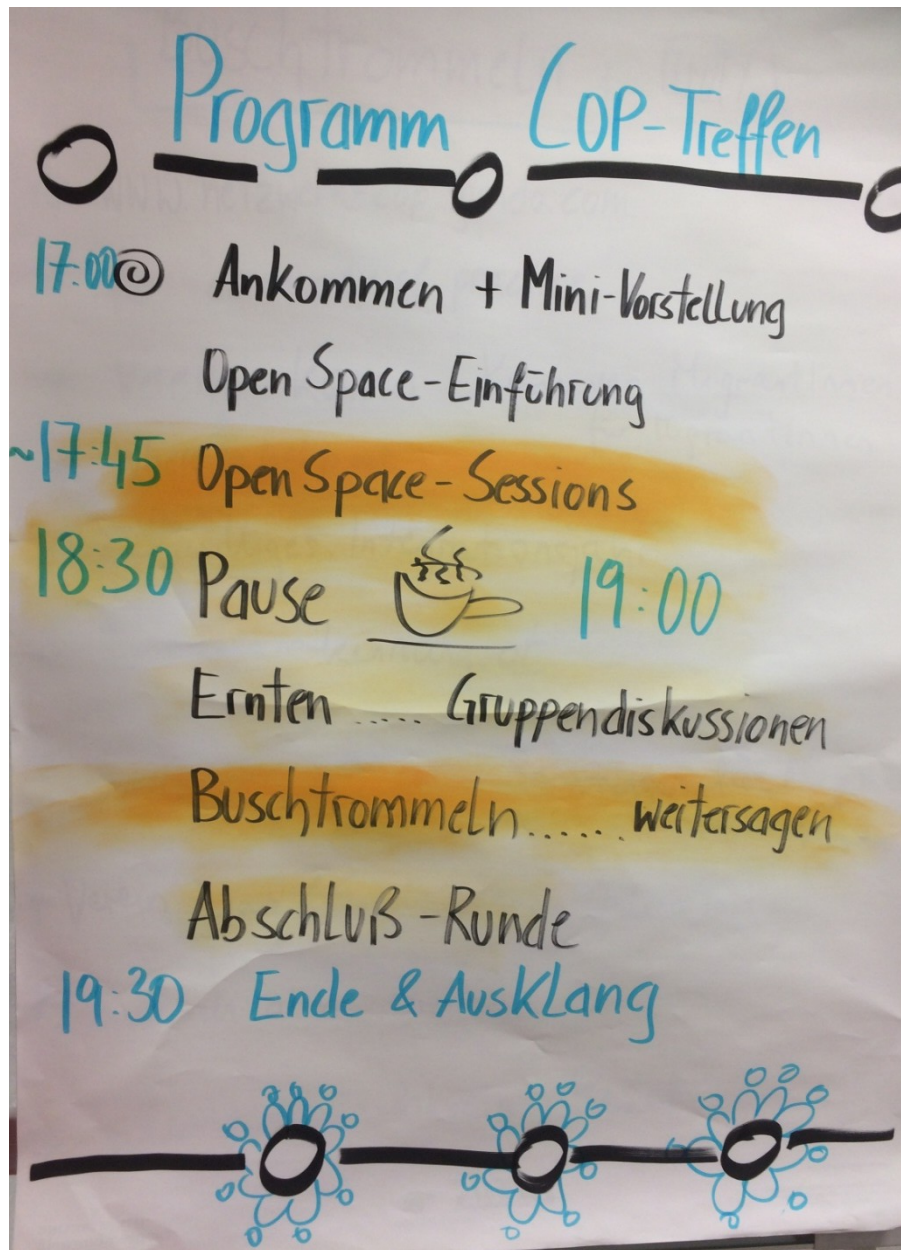 Programm CoP-Treffen
17:00 Ankommen + Mini-Vorstellung
Open Space-Einführung
~17:45 Open Space-Sessions
18:30 Pause 19:00
Ernten ..... Gruppendiskussionen
Buschtrommeln ...... weitersagen
Abschluß-Runde
19:30 Ende & Ausklang